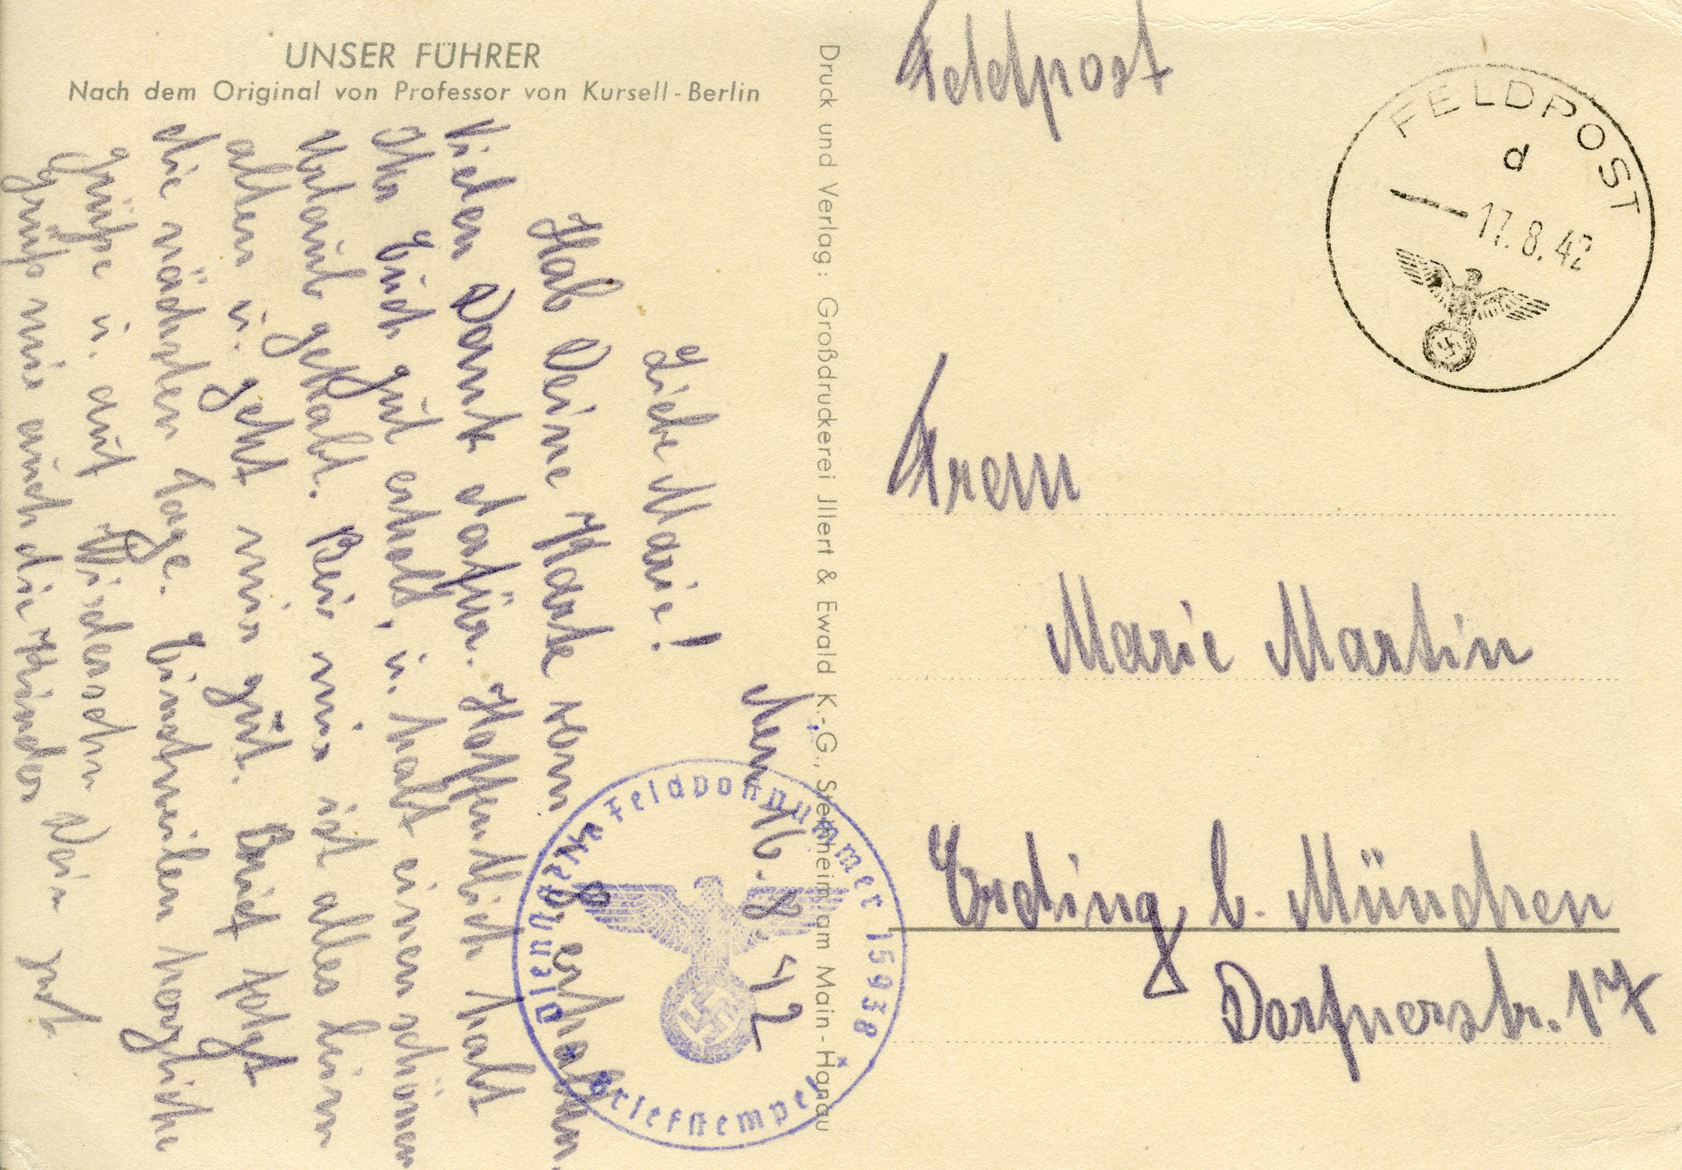 UNSER FÜHRER
Nach dem Original von Professor von Kursell-Berlin
Druck und Verlag: Großdruckerei Jllert & Ewald K.-G., Steinheim am Main-Hanau
16. 8. 42
Liebe Marie!
Hab Deine Karte vom 9. erhalten.
Vielen Dank dafür. Hoffentlich habt
Ihr Euch gut erholt, u. habt einen schönen
Urlaub gehabt. Bei mir ist alles beim
alten u. geht mir gut. Brief folgt
die nächsten Tage. Einstweilen herzliche
Grüße u. auf Wiedersehn Dein
Grüß mir auch die Kinder
Feldpost
FELDPOST
d
17.8.42
Dienststelle Feldpostnummer 15938
Briefstempel
Frau
Marie Martin
Erding b. München
Dorfnerstr. 17